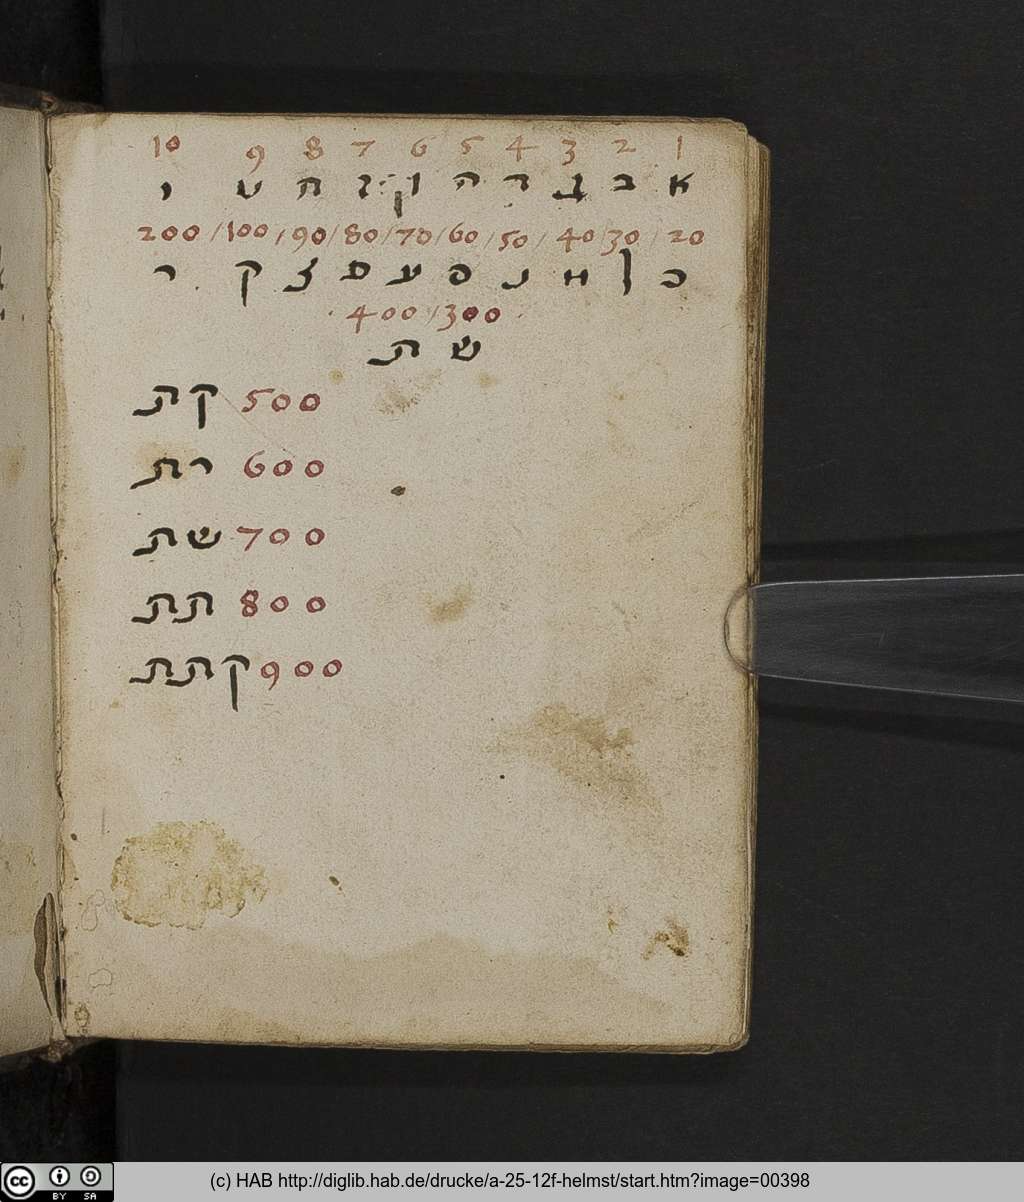 10 9 8 7 6 5 4 3 2 1
א ב ג ד ה ו ז ח ט י
200 / 100 / 90 / 80 / 70 / 60 / 50 / 40 / 30 / 20
כ ל מ נ ס ע פ צ ק ר
400 / 300
ש ת
קת 500
רת 600
שת 700
תת 800
קתת 900
(c) HAB http://diglib.hab.de/drucke/a-25-12f-helmst/start.htm?image=00398
cc BY SA